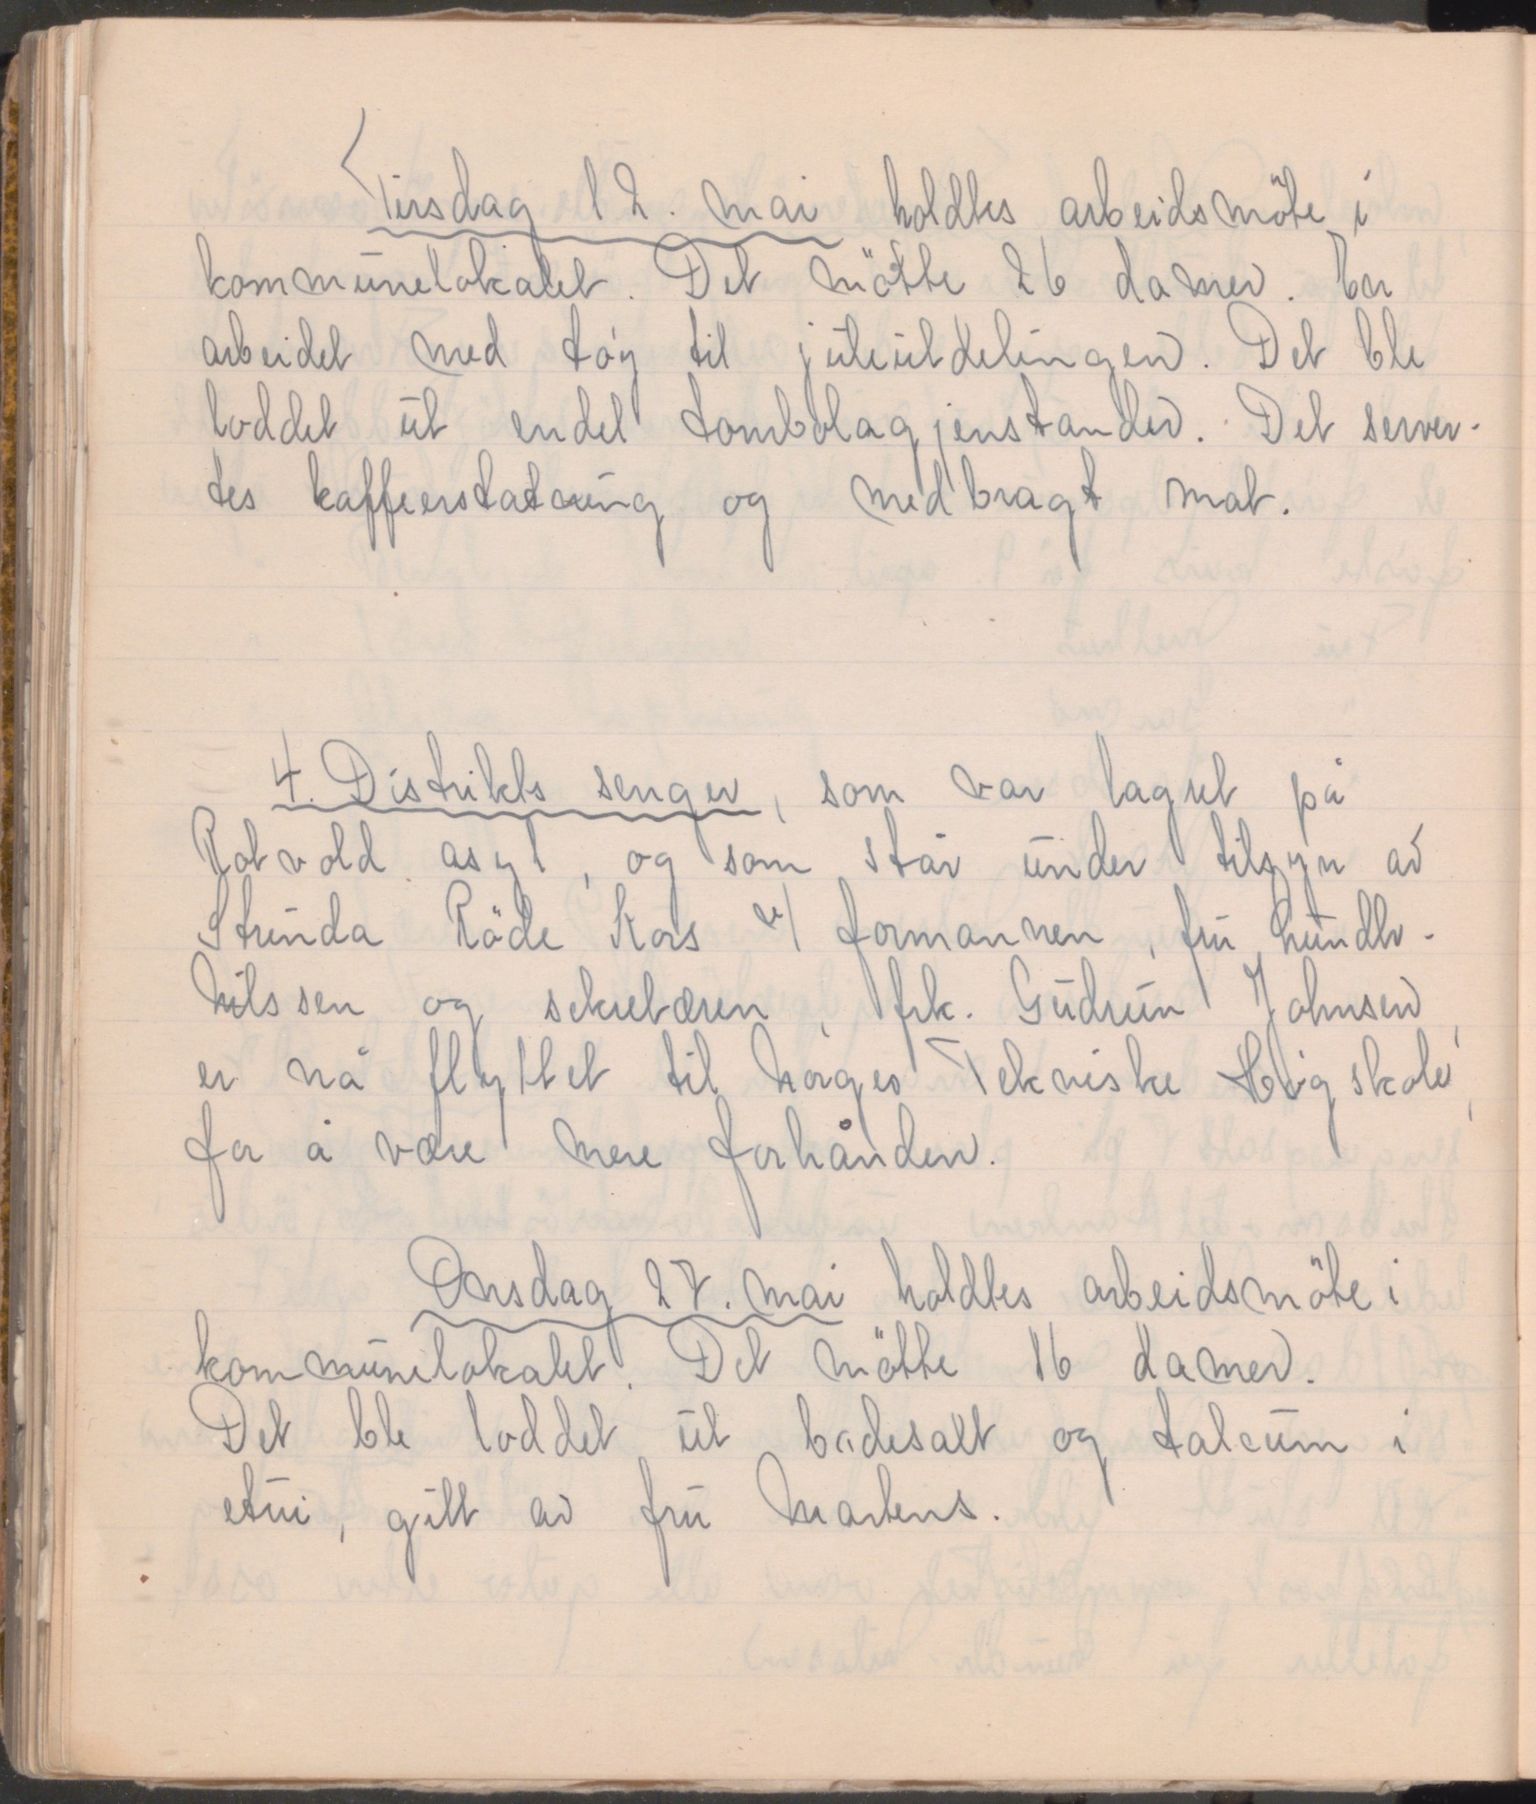 Tirsdag 12. mai holdtes arbeidsmöte i
kommunelokalet. Det mötte 26 damer. En
arbeidet med tøy til juleutdelingen. Det ble
loddet ut endel tombolagjenstander. Det server-
tes kaffeerstatning og medbragt mat.
4. Distrikts senger, som var lagret på
Rotvold asyl, og som står under tilsyn av
Strinda Röde Kors v/ formannen, fru Lundh-
Nilssen og sekretæren, frk. Gudrun Johnsen,
er nå flyttet til Norges Tekniske Høgskole,
for å være mere forhånden.
Onsdag 27. mai holdtes arbeidsmöte i
kommunelokalet. Det mötte 16 damer.
Det ble loddet ut badesalt og talcum i
etui, gitt av fru Martens.